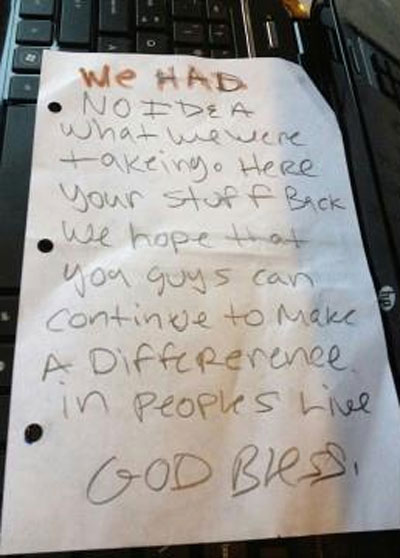 We HAD
NO IDEA
what we were
takeing. Here
your stuff Back
We hope that
you guys can
continue to Make
A Differerence
in peoples Live
GOD Bless.